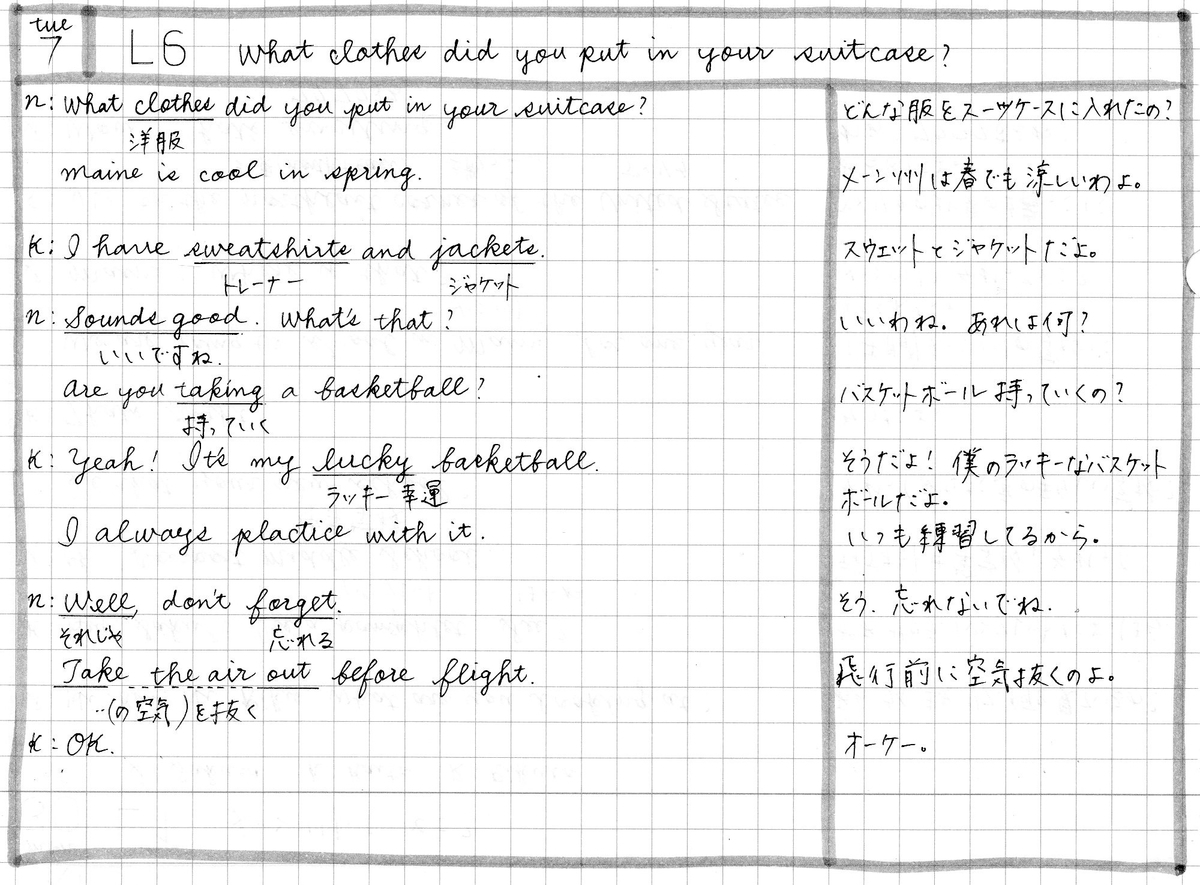 tue
7
L6 What clothes did you put in your suitcase?
n: What clothes did you put in your suitcase? どんな服をスーツケースに入れたの?
洋服
maine is cool in spring. メーン州は春でも涼しいわよ。
K: I have sweatshirts and jackets. スウェットとジャケットだよ。
トレーナー ジャケット
n: Sounds good. What's that? いいわね。あれは何?
いいですね.
are you taking a basketball? バスケットボール持っていくの?
持っていく
K: Yeah! It's my lucky basketball. そうだよ!僕のラッキーなバスケット
ラッキー 幸運 ボールだよ。
I always plactice with it. いつも練習してるから。
n: Well, don't forget. そう、忘れないでね.
それじゃ 忘れる
Take the air out before flight. 飛行前に空気抜くのよ。
‥(の空気)を抜く
K: OK. オーケー。